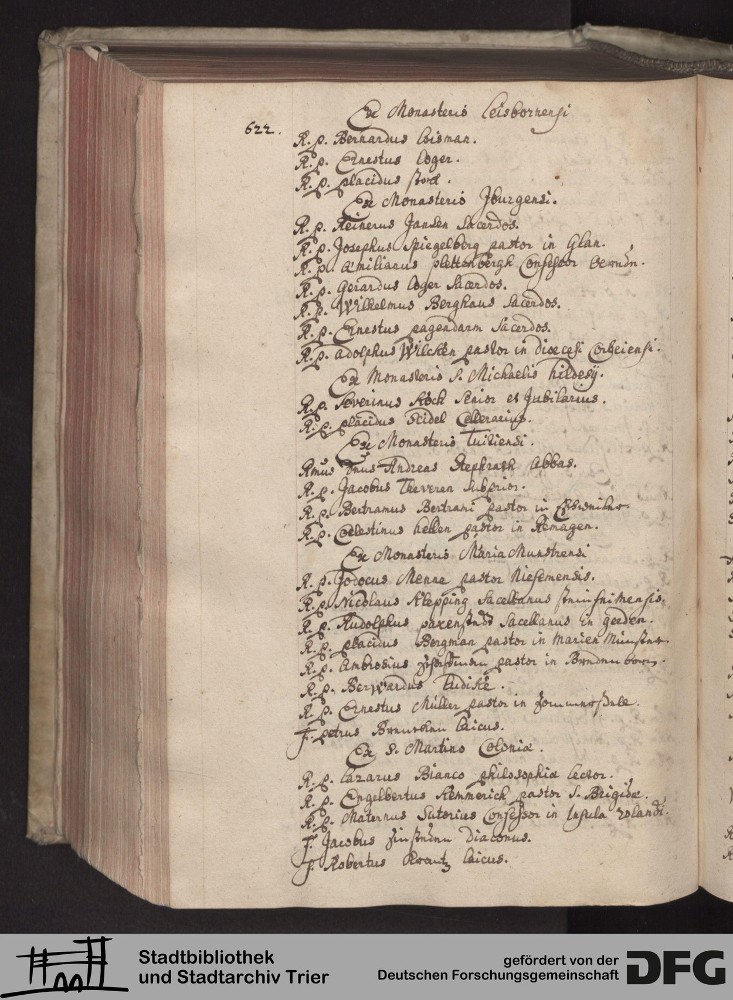 Ex Monasterio Leisbornensi
622.
R. P. Bernardus Coisman.
R. P. Ernestus Coger.
R. P. Placidus
Ex Monasterio Iburgensi.
R. P. Reinerus Jansen Sacerdos.
R. P. Josephus Spiegelberg pastor in Glan.
R. P. Æmilianus Plettenbergh Confessor
R. P. Gerardus Coger Sacerdos.
R. P. Wilhelmus Berghaus Sacerdos.
R. P. Ernestus Pagendarm Sacerdos.
R. P. Adolphus Wilcken pastor in diœcesi Corbeiensi.
Ex Monasterio S. Michaelis Hildesij.
R. P. Severinus Stock Senior et Jubilarius.
R. P. Placidus Seidel Cellerarius.
Ex Monasterio Tuitiensi.
Rmus Dnus Andreas Stephrath Abbas.
R. P. Jacobus Theveren Subprior.
R. P. Bertramus Bertrami pastor in
R. P. Cœlestinus Hellen pastor in Remagen.
Ex Monasterio Mariæ Munstrensi
R. P. Jodocus Menne pastor Niesemensis.
R. P. Nicolaus Klepping Sacellanus
R. P. Rudolphus Sacellanus in Gerden.
R. P. Placidus Bergman pastor in Marien Münster.
R. P. Ambrosius pastor in
R. P. Berwardus Tudiske.
R. P. Ernestus Müller pastor in Sommersele.
F. Petrus laicus.
Ex S. Martino Coloniæ.
R. P. Lazarus Bianco philosophiæ lector.
R. P. Engelbertus Kemmerich pastor S. Brigidæ.
R. P. Maternus Sutorius Confessor in Insula Rolandi.
F. Jacobus diaconus.
F. Robertus Krautz laicus.
Stadtbibliothek
und Stadtarchiv Trier
gefördert von der
Deutschen Forschungsgemeinschaft
DFG